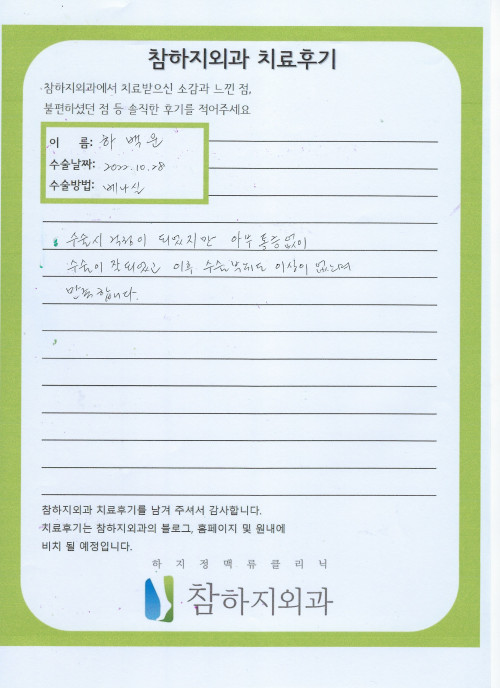 참하지외과 치료후기
참하지외과에서 치료받으신 소감과 느낀 점,
불편하셨던 점 등 솔직한 후기를 적어주세요
이 름: 하백운
수술날짜: 2022.10.28
수술방법: 베나실
수술시 걱정이 되었지만 아무 통증없이
수술이 잘되었고 이후 수술부위도 이상이 없으며
만족합니다.
참하지외과 치료후기를 남겨 주셔서 감사합니다.
치료후기는 참하지외과의 블로그, 홈페이지 및 원내에
비치 될 예정입니다.
하지정맥류클리닉
참하지외과